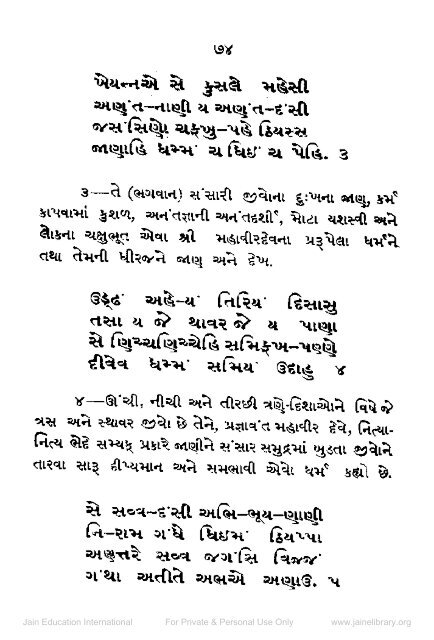 ૭૪
ખેયન્નએ સે કુસલે મહેસી
અણુંત-નાણી ય અણુંત-દંસી
જસંસિણો ચક્ખુ-પહે ઠિયસ્સ
જાણાહિ ધમ્મં ચ ધિઇં ચ પેહિ. ૩
૩—તે (ભગવાન) સંસારી જીવોના દુઃખના જાણુ, કર્મ
કાપવામાં કુશળ, અનંતજ્ઞાની અનંતદર્શી, મોટા યશસ્વી અને
લોકના ચક્ષુભૂત એવા શ્રી મહાવીરદેવના પ્રરૂપેલા ધર્મને
તથા તેમની ધીરજને જાણ અને દેખ.
ઉડ્ઢં અહે-યં તિરિયં દિસાસુ
તસા ય જે થાવર જે ય પાણા
સે ણિચ્ચણિચ્ચેહિ સમિક્ખ-પણ્ણે
દીવેવ ધમ્મં સમિયં ઉદાહુ ૪
૪—ઊંચી, નીચી અને તીરછી ત્રણે-દિશાઓને વિષે જે
ત્રસ અને સ્થાવર જીવો છે તેને, પ્રજ્ઞાવંત મહાવીર દેવે, નિત્યા-
નિત્ય ભેદે સમ્યક્ પ્રકારે જાણીને સંસાર સમુદ્રમાં બુડતા જીવોને
તારવા સારૂ દીપ્યમાન અને સમભાવી એવો ધર્મ કહ્યો છે.
સે સવ્વ-દંસી અભિ-ભૂય-ણાણી
નિ-રામ ગંધે ધિઇમં ઠિયપ્પા
અણુત્તરે સવ્વ જગંસિ વિજ્જં
ગંથા અતીતે અભએ અણાઉ. ૫
Jain Education International For Private & Personal Use Only www.jainelibrary.org